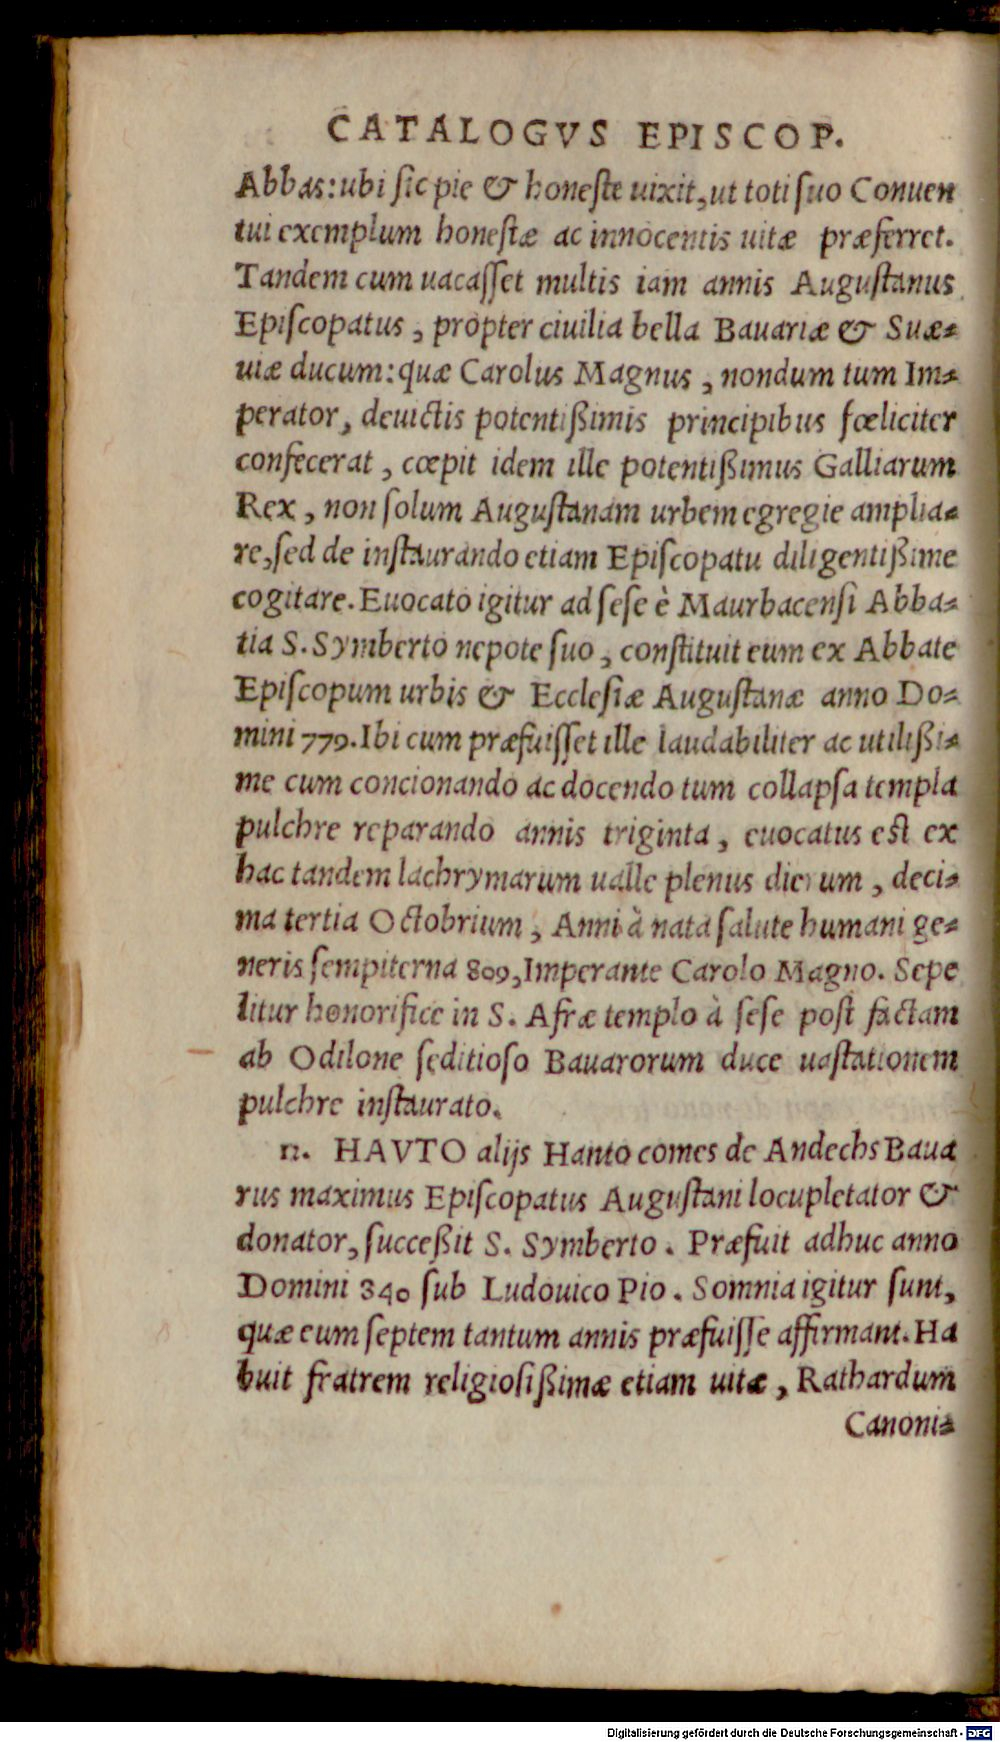 CATALOGVS EPISCOP.
Abbas: ubi sic pie & honeste uixit, ut toti suo Conuen
tui exemplum honestæ ac innocentis uitæ præferret.
Tandem cum uacasset multis iam annis Augustanus
Episcopatus, propter ciuilia bella Bauariæ & Suæ-
uiæ ducum: quæ Carolus Magnus, nondum tum Im-
perator, deuictis potentißimis principibus fœliciter
confecerat, cœpit idem ille potentißimus Galliarum
Rex, non solum Augustanam urbem egregie amplia-
re, sed de instaurando etiam Episcopatu diligentißime
cogitare. Euocato igitur ad sese è Maurbacensi Abba-
tia S. Symberto nepote suo, constituit eum ex Abbate
Episcopum urbis & Ecclesiæ Augustanæ anno Do-
mini 779. Ibi cum præfuisset ille laudabiliter ac utilißi-
me cum concionando ac docendo tum collapsa templa
pulchre reparando annis triginta, euocatus est ex
hac tandem lachrymarum ualle plenus dierum, deci-
ma tertia Octobrium, Anni à nata salute humani ge-
neris sempiterna 809, Imperante Carolo Magno. Sepe
litur honorifice in S. Afræ templo à sese post factam
ab Odilone seditioso Bauarorum duce uastationem
pulchre instaurato.
12. HAVTO alijs Hanto comes de Andechs Baua
rus maximus Episcopatus Augustani locupletator &
donator, succeßit S. Symberto. Præfuit adhuc anno
Domini 840 sub Ludouico Pio. Somnia igitur sunt,
quæ eum septem tantum annis præfuisse affirmant. Ha
buit fratrem religiosißimæ etiam uitæ, Rathardum
Canoni-
Digitalisierung gefördert durch die Deutsche Forschungsgemeinschaft - DFG